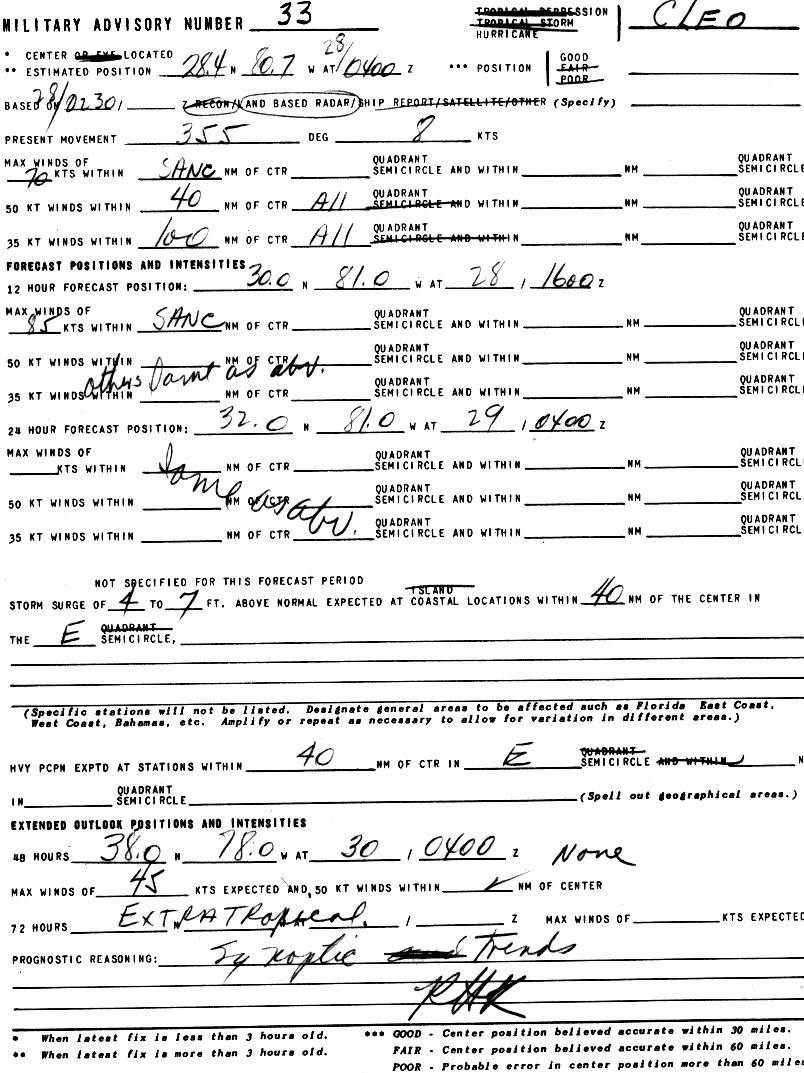 MILITARY ADVISORY NUMBER 33 TROPICAL DEPRESSION CLEO
TROPICAL STORM
HURRICANE
* CENTER OR EYE LOCATED
** ESTIMATED POSITION 28.4 N 80.7 W AT 28/0400 Z *** POSITION GOOD
FAIR
POOR
BASED ON 28/0230, Z RECON/LAND BASED RADAR/SHIP REPORT/SATELLITE/OTHER (Specify)
PRESENT MOVEMENT 355 DEG 8 KTS
MAX WINDS OF
70 KTS WITHIN SANC NM OF CTR QUADRANT SEMICIRCLE AND WITHIN NM QUADRANT SEMICIRCLE
50 KT WINDS WITHIN 40 NM OF CTR All QUADRANT SEMICIRCLE AND WITHIN NM QUADRANT SEMICIRCLE
35 KT WINDS WITHIN 100 NM OF CTR All QUADRANT SEMICIRCLE AND WITHIN NM QUADRANT SEMICIRCLE
FORECAST POSITIONS AND INTENSITIES
12 HOUR FORECAST POSITION: 30.0 N 81.0 W AT 28 / 1600 Z
MAX WINDS OF
85 KTS WITHIN SANC NM OF CTR QUADRANT SEMICIRCLE AND WITHIN NM QUADRANT SEMICIRCLE
50 KT WINDS WITHIN NM OF CTR QUADRANT SEMICIRCLE AND WITHIN NM QUADRANT SEMICIRCLE
others same as abv.
35 KT WINDS WITHIN NM OF CTR QUADRANT SEMICIRCLE AND WITHIN NM QUADRANT SEMICIRCLE
24 HOUR FORECAST POSITION: 32.0 N 81.0 W AT 29 / 0400 Z
MAX WINDS OF
KTS WITHIN NM OF CTR QUADRANT SEMICIRCLE AND WITHIN NM QUADRANT SEMICIRCLE
Same as abv.
50 KT WINDS WITHIN NM OF CTR QUADRANT SEMICIRCLE AND WITHIN NM QUADRANT SEMICIRCL
35 KT WINDS WITHIN NM OF CTR QUADRANT SEMICIRCLE AND WITHIN NM QUADRANT SEMICIRCL
NOT SPECIFIED FOR THIS FORECAST PERIOD
STORM SURGE OF 4 TO 7 FT. ABOVE NORMAL EXPECTED AT ISLAND COASTAL LOCATIONS WITHIN 40 NM OF THE CENTER IN
THE E QUADRANT SEMICIRCLE,
(Specific stations will not be listed. Designate general areas to be affected such as Florida East Coast,
West Coast, Bahamas, etc. Amplify or repeat as necessary to allow for variation in different areas.)
HVY PCPN EXPTD AT STATIONS WITHIN 40 NM OF CTR IN E QUADRANT SEMICIRCLE AND WITHIN N
IN QUADRANT SEMICIRCLE (Spell out geographical areas.)
EXTENDED OUTLOOK POSITIONS AND INTENSITIES
48 HOURS 38.0 N 78.0 W AT 30 / 0400 Z None
MAX WINDS OF 45 KTS EXPECTED AND, 50 KT WINDS WITHIN NM OF CENTER
72 HOURS EXTRATROPICAL / Z MAX WINDS OF KTS EXPECTED
PROGNOSTIC REASONING: Synoptic and Trends
RHK
* When latest fix is less than 3 hours old. *** GOOD - Center position believed accurate within 30 miles.
** When latest fix is more than 3 hours old. FAIR - Center position believed accurate within 60 miles.
POOR - Probable error in center position more than 60 miles